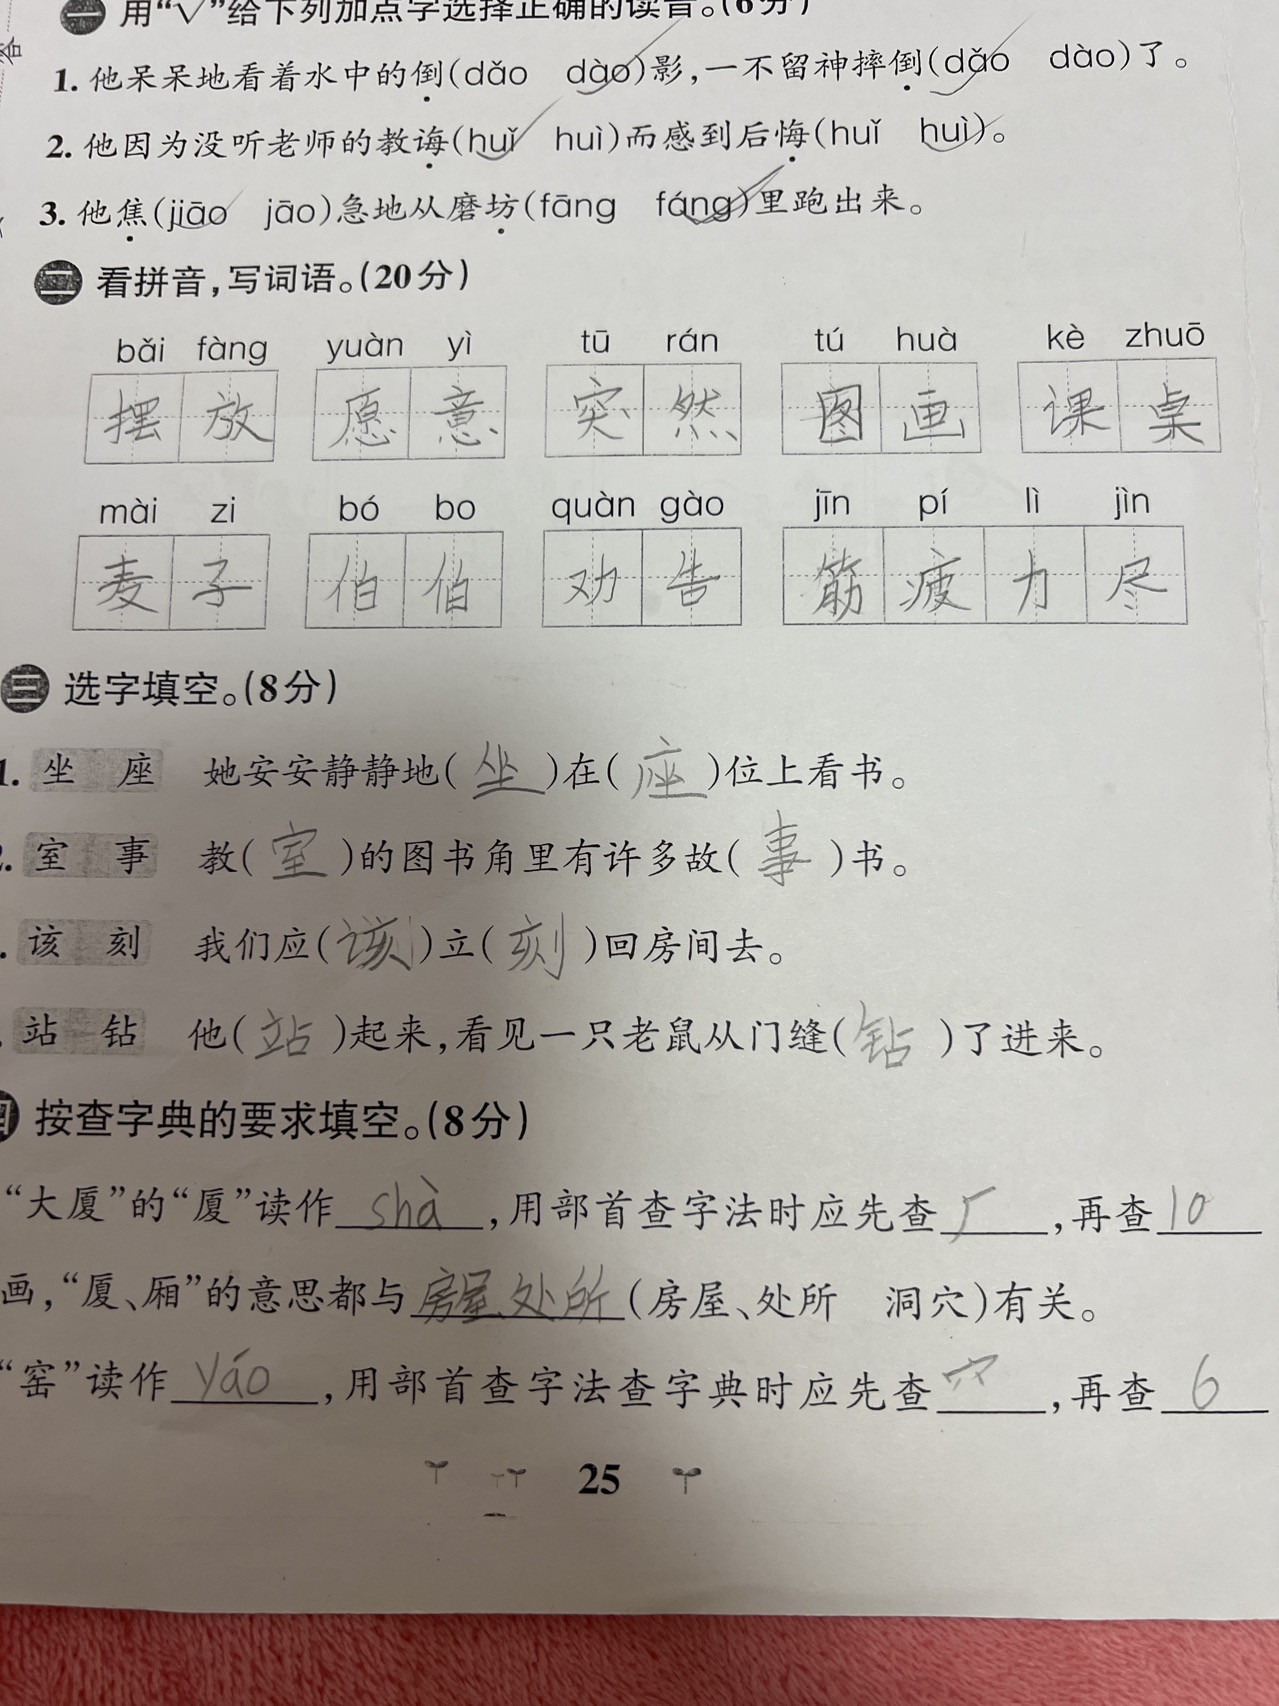 一 用“√”给下列加点字选择正确的读音。(6分)
1. 他呆呆地看着水中的倒(dǎo dào)影,一不留神摔倒(dǎo dào)了。
2. 他因为没听老师的教诲(huǐ huì)而感到后悔(huǐ huì)。
3. 他焦(jiāo jāo)急地从磨坊(fāng fáng)里跑出来。
二 看拼音,写词语。(20分)
bǎi fàng yuàn yì tū rán tú huà kè zhuō
摆放 愿意 突然 图画 课桌
mài zi bó bo quàn gào jīn pí lì jìn
麦子 伯伯 劝告 筋疲力尽
三 选字填空。(8分)
1. 坐 座 她安安静静地(坐)在(座)位上看书。
. 室 事 教(室)的图书角里有许多故(事)书。
. 该 刻 我们应(该)立(刻)回房间去。
. 站 钻 他(站)起来,看见一只老鼠从门缝(钻)了进来。
四 按查字典的要求填空。(8分)
“大厦”的“厦”读作shà,用部首查字法时应先查厂,再查10
画,“厦、厢”的意思都与房屋、处所(房屋、处所 洞穴)有关。
“窑”读作yáo,用部首查字法查字典时应先查穴,再查6
25